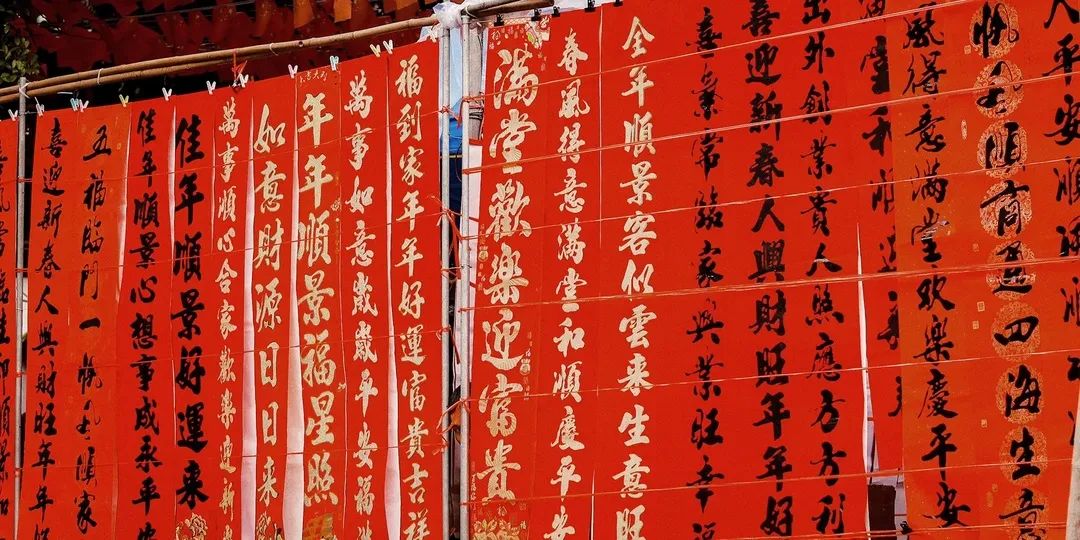 帆风順商通四海生意
風得意滿堂欢樂慶平安
出外創業貴人照應方方利
喜迎新春人興財旺年年好
喜氣常臨家興業旺幸福
全年順景客似雲來生意旺
春風得意滿堂和順慶平安
滿堂歡樂迎富貴
福到家年年好運富貴吉祥
萬事如意歲歲平安福滿
年年順景福星照
如意財源日日來
萬事順心合家歡樂迎新
佳年順景好運來
佳年順景心想事成永平安
五福臨門一帆风順家
喜迎新春人興財旺年年